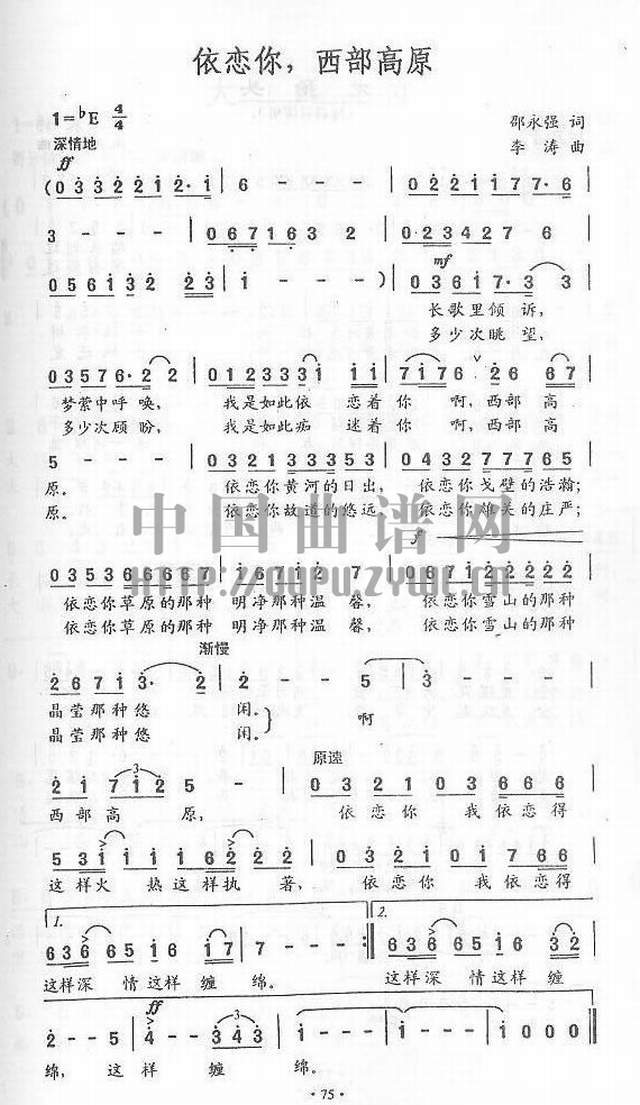 依恋你，西部高原
1=♭E 4/4
邵永强 词
深情地
李涛 曲
ff
(0 3 3 2 2 1 2· 1 | 6 - - - | 0 2 2 1 1 7 7· 6 |
3 - - - | 0 6 7 1 6 3 2 | 0·2 3 4 2 7 6 |
mf
0 5 6 1 3 2 2 3 | 1 - - - ) | 0 3 6 1 7· 3 3 |
长歌里倾诉，
多少次眺望，
0 3 5 7 6· 2 2 | 0 1 2 3 3 3 1 1 1 | 7 1 7 6 2 6 6 7 |
梦萦中呼唤， 我是如此依 恋着你 啊，西部高
多少次顾盼， 我是如此痴 迷着你 啊，西部高
5 - - - | 0 3 2 1 3 3 3 5 3 | 0 4 3 2 7 7 7 6 5 |
原。 依恋你黄河的日出， 依恋你戈壁的浩瀚；
原。 依恋你故道的悠远， 依恋你雄关的庄严；
中国曲谱网
f
HTTP://QUPU.ZYWL.CN
0 3 5 3 6 6 6 6 6 7 | 1· 6 7 6 1 2 - | 0 6 7 1 2 2 2 2 2 2 |
依恋你草原的那种 明净那种温馨， 依恋你雪山的那种
依恋你草原的那种 明净那种温馨， 依恋你雪山的那种
渐慢
2 6 7 1 3· 2 | 2 - - 5 | 3 - - - |
晶莹那种悠 闲。 啊
晶莹那种悠 闲。
原速
2 1 7 1 2 5 - | 0 3 2 1 0 3 6 6 6 |
西部高原， 依恋你 我依恋得
5 3 1 1 1 1 6 2 2 2 | 0 3 2 1 0 3 6 6 |
这样火 热这样执著， 依恋你 我依恋得
1. 2.
6 3 6 6 5 1 6 1 7 | 7 - - - :‖ 6 3 6 6 5 1 6 3 2 |
这样深 情这样缠绵。 这样深 情这样缠
ff
2 - - 5 | 4 - - 3 4 3 | 1 - - - | 1 - - - | 1 0 0 0 ‖
绵，这样 缠 绵。
· 75 ·